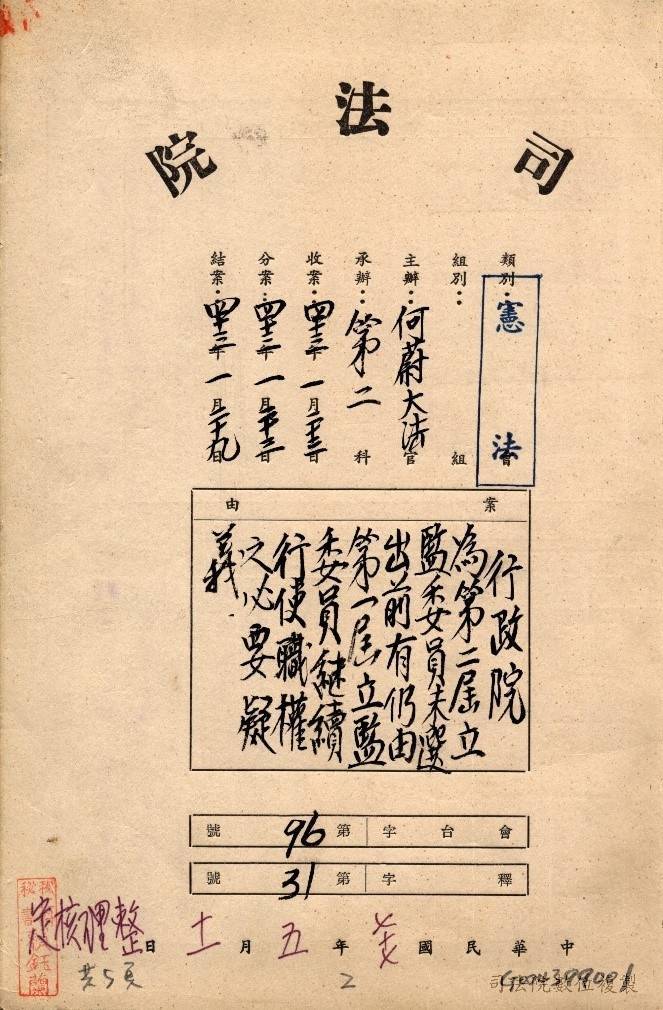 司法院
類別：憲法會
組別：組
主辦：何蔚大法官
承辦：第二科
收案：四十三年一月二十三日
分案：四十三年一月二十三日
結案：四十三年一月二十九日
案由
行政院
為第二屆立
監委員未選
出前有仍由
第一屆立監
委員繼續
行使職權
之必要疑
義
會台字第96號
釋字第31號
中華民國年五月十一日
整理核定
共5頁
2
司法院數位複製